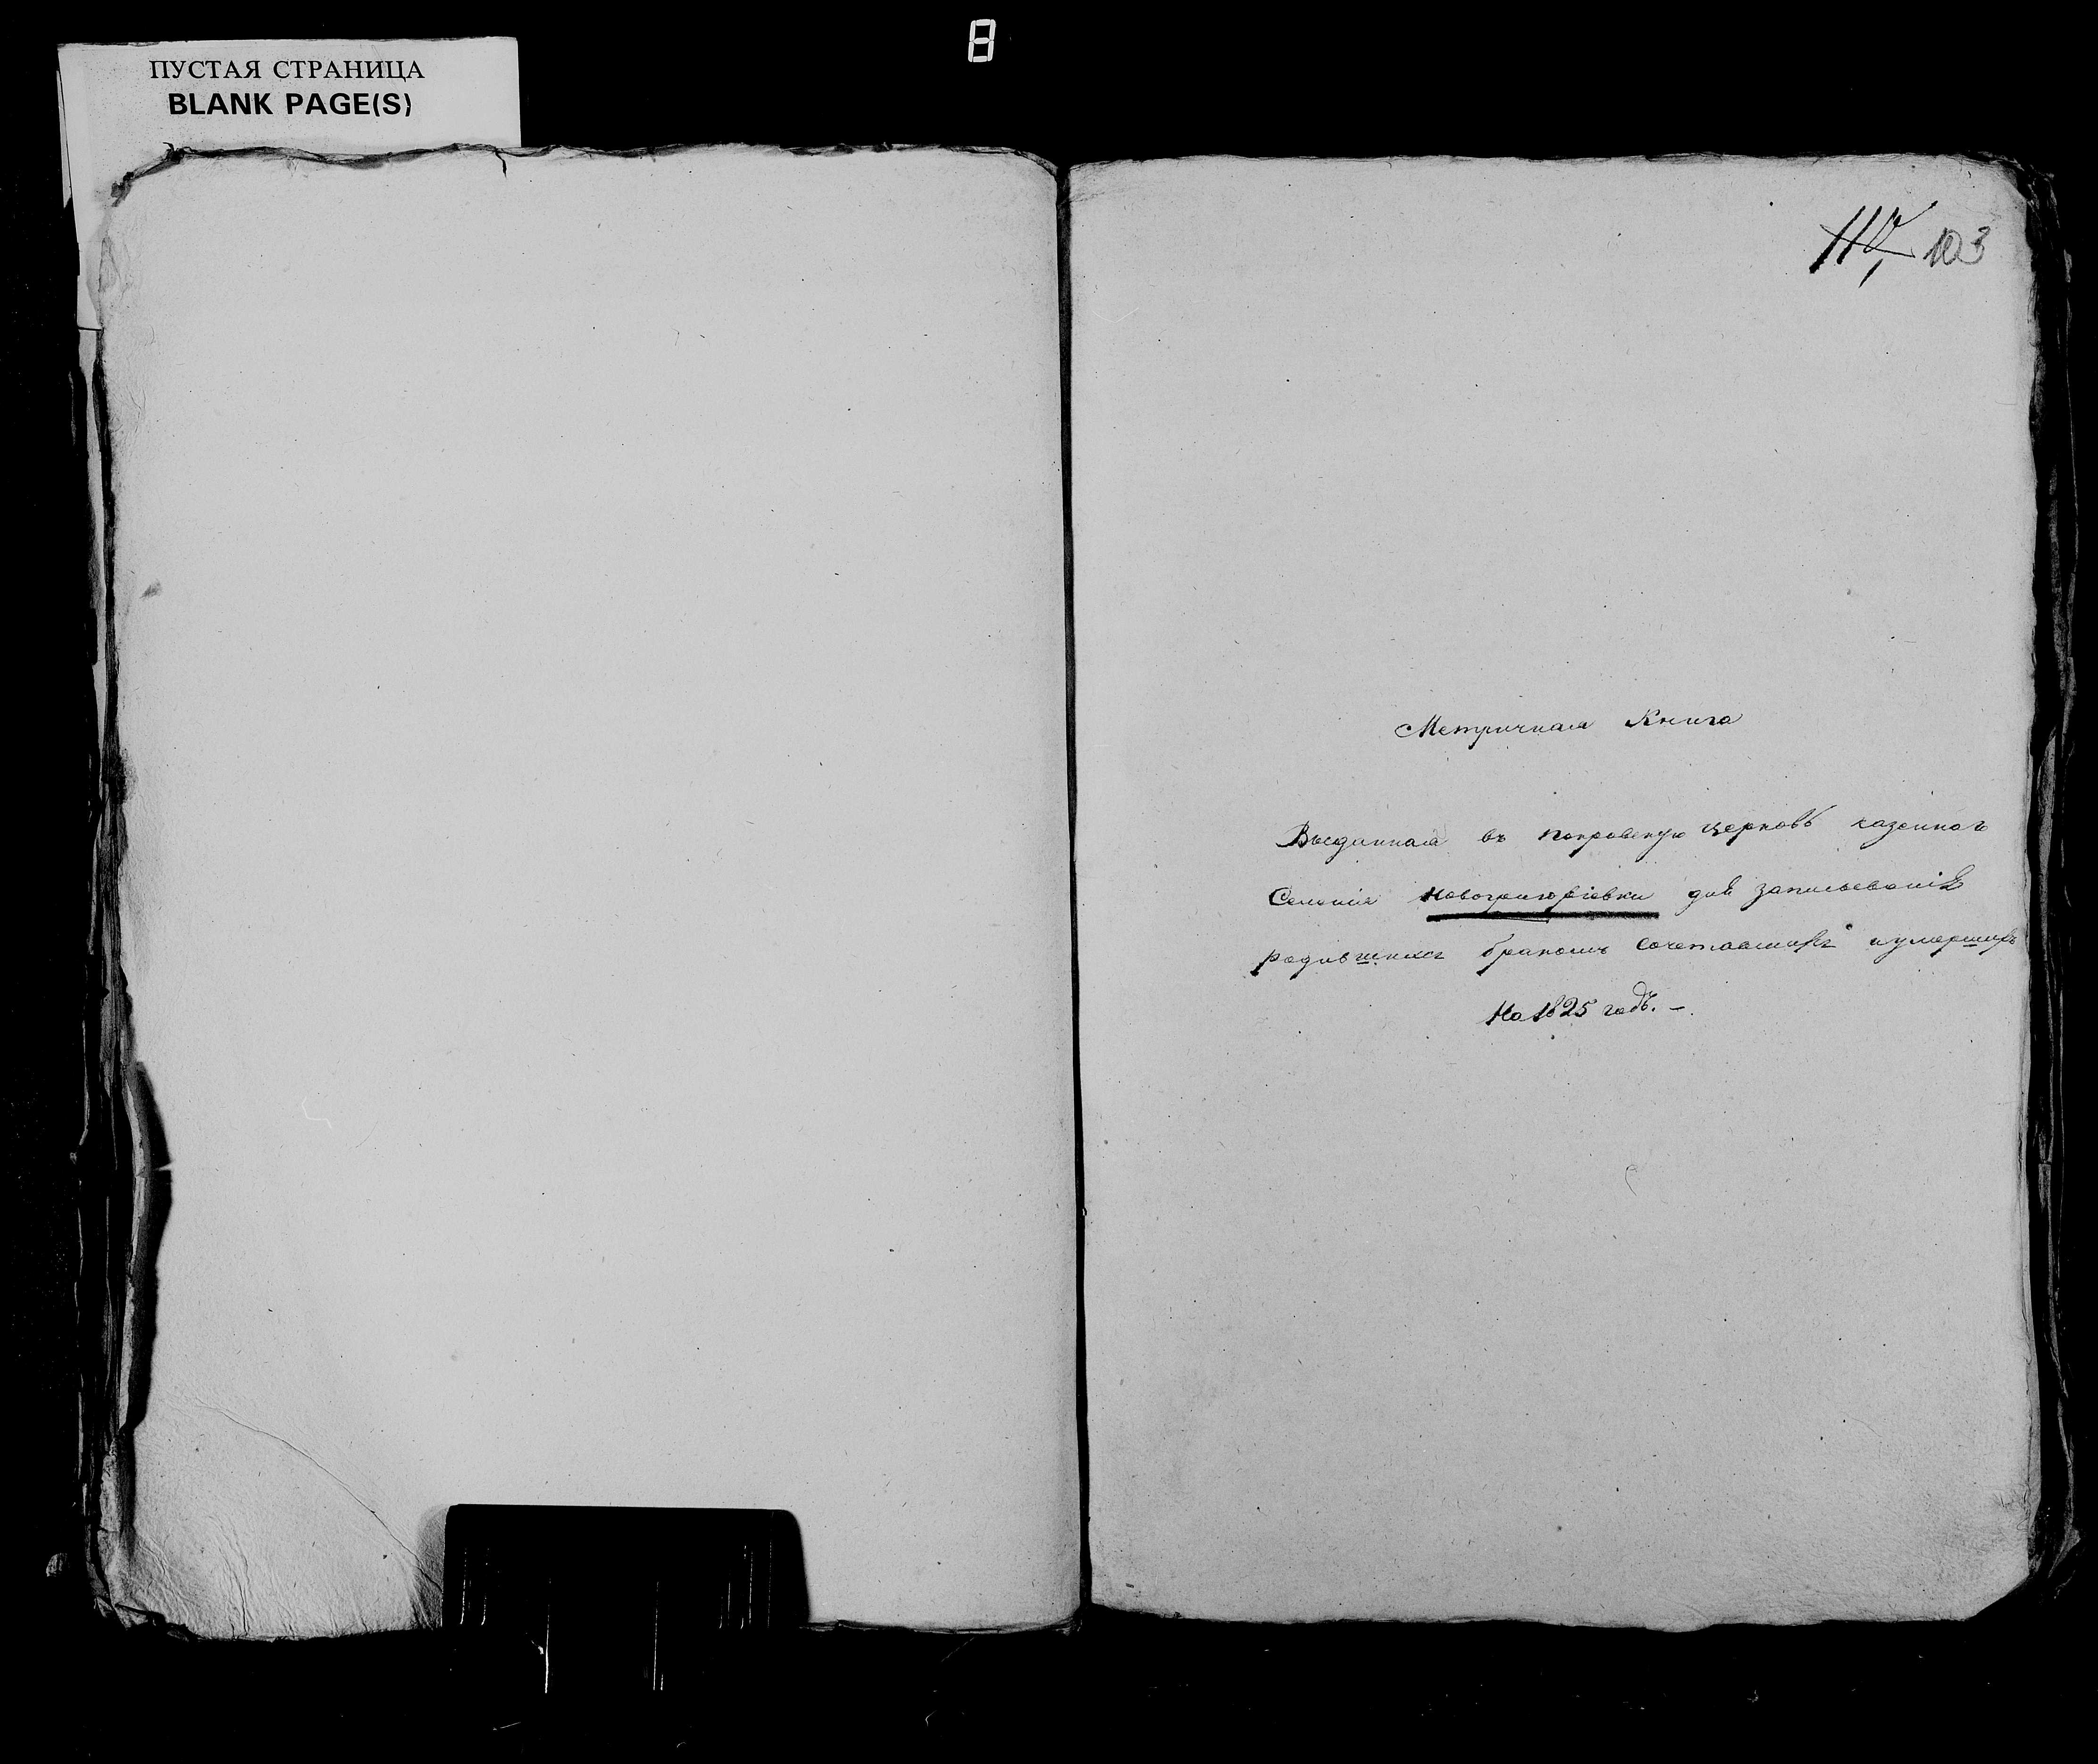 8
ПУСТАЯ СТРАНИЦА
BLANK PAGE(S)
103
Метричная Книга
Выданная въ покровскую церковь казеннаго
Селенія Новогригорьевки для записыванія
родившихся бракомъ сочетавшихъ и умершихъ
На 1825 годъ. –